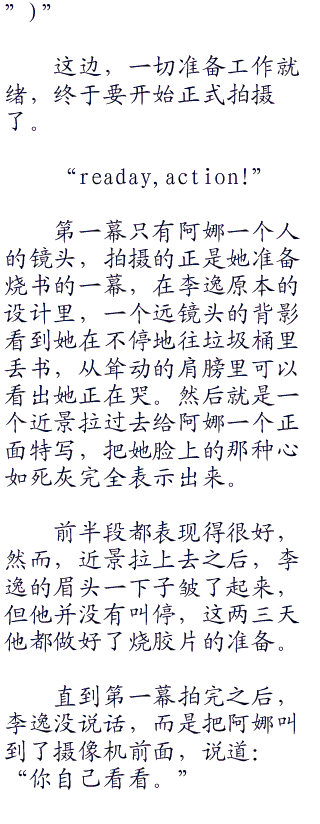 ”)”
这边，一切准备工作就
绪，终于要开始正式拍摄
了。
“readay,action!”
第一幕只有阿娜一个人
的镜头，拍摄的正是她准备
烧书的一幕，在李逸原本的
设计里，一个远镜头的背影
看到她在不停地往垃圾桶里
丢书，从耸动的肩膀里可以
看出她正在哭。然后就是一
个近景拉过去给阿娜一个正
面特写，把她脸上的那种心
如死灰完全表示出来。
前半段都表现得很好，
然而，近景拉上去之后，李
逸的眉头一下子皱了起来，
但他并没有叫停，这两三天
他都做好了烧胶片的准备。
直到第一幕拍完之后，
李逸没说话，而是把阿娜叫
到了摄像机前面，说道：
“你自己看看。”